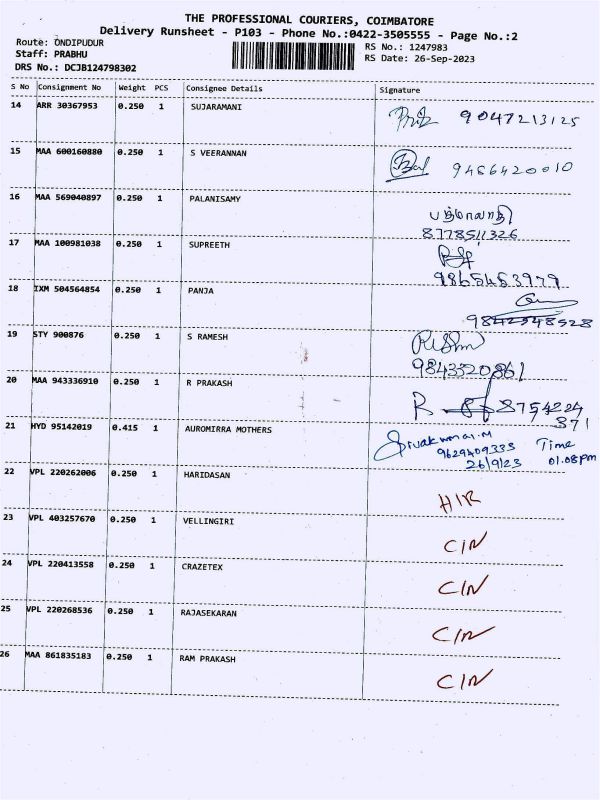 THE PROFESSIONAL COURIERS, COIMBATORE
Delivery Runsheet - P103 - Phone No.:0422-3505555 - Page No.:2
Route: ONDIPUDUR
RS No.: 1247983
Staff: PRABHU
RS Date: 26-Sep-2023
DRS No.: DCJB124798302
S No Consignment No Weight PCS Consignee Details Signature
14 ARR 30367953 0.250 1 SUJARAMANI 9047213125
15 MAA 600160880 0.250 1 S VEERANNAN 9486420010
16 MAA 569040897 0.250 1 PALANISAMY
8778511326
17 MAA 100981038 0.250 1 SUPREETH
9865453979
18 IXM 504564854 0.250 1 PANJA
9842548528
19 STY 900876 0.250 1 S RAMESH
9843320861
20 MAA 943336910 0.250 1 R PRAKASH R 8754224
871
21 HYD 95142019 0.415 1 AUROMIRRA MOTHERS Sivakumar.M Time
9629409333
26/9/23 01.08pm
22 VPL 220262006 0.250 1 HARIDASAN H/R
23 VPL 403257670 0.250 1 VELLINGIRI C/N
24 VPL 220413558 0.250 1 CRAZETEX C/N
25 VPL 220268536 0.250 1 RAJASEKARAN C/N
26 MAA 861835183 0.250 1 RAM PRAKASH C/N